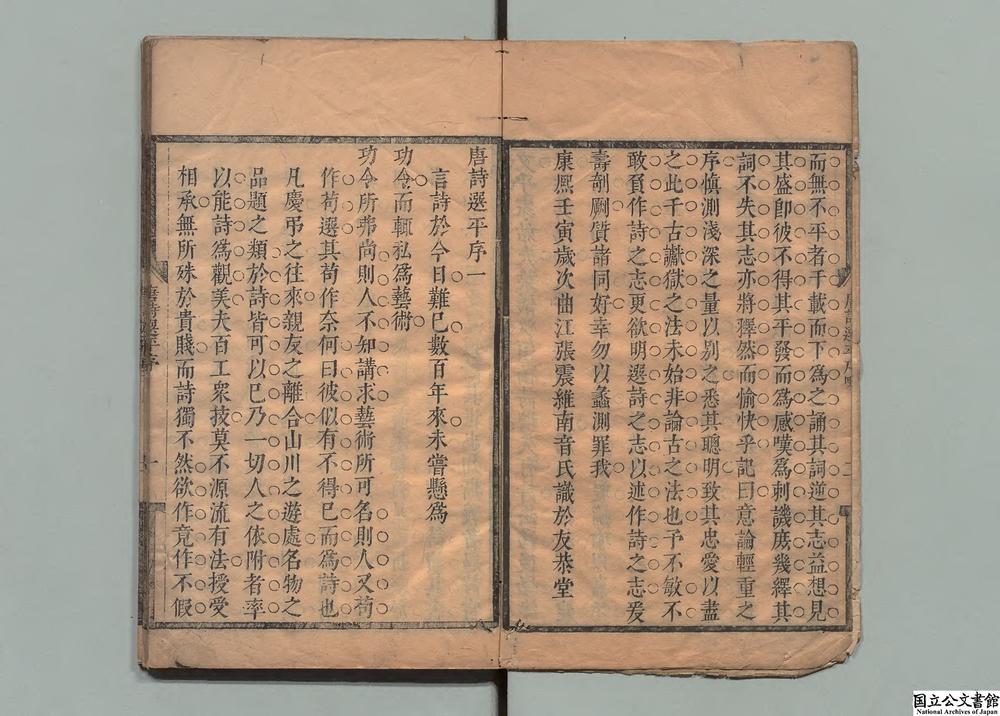 而無不平者千載而下為之誦其詞逆其志益想見
其盛卽彼不得其平發而為感嘆為刺譏庶幾繹其
詞不失其志亦將釋然而愉快乎記曰意論輕重之
序愼測淺深之量以别之悉其聰明致其忠愛以盡
之此千古讞獄之法未始非論古之法也予不敏不
敢貟作詩之志更欲明選詩之志以述作詩之志爰
壽剞劂質諸同好幸勿以蠡測罪我
康熈壬寅歲次曲江張震維南音氏識於友恭堂
唐詩選平序一
言詩於今日難巳數百年來未嘗懸為
功令而輒私為藝術
功令所弗尚則人不知講求藝術所可名則人又茍
作茍選其茍作奈何曰彼似有不得巳而為詩也
凡慶弔之往來親友之離合山川之遊處名物之
品題之類於詩皆可以巳乃一切人之依附者率
以能詩爲觀美夫百工衆技莫不源流有法授受
相承無所殊於貴賤而詩獨不然欲作竟作不假
唐詩選平序
一
国立公文書館
National Archives of Japan